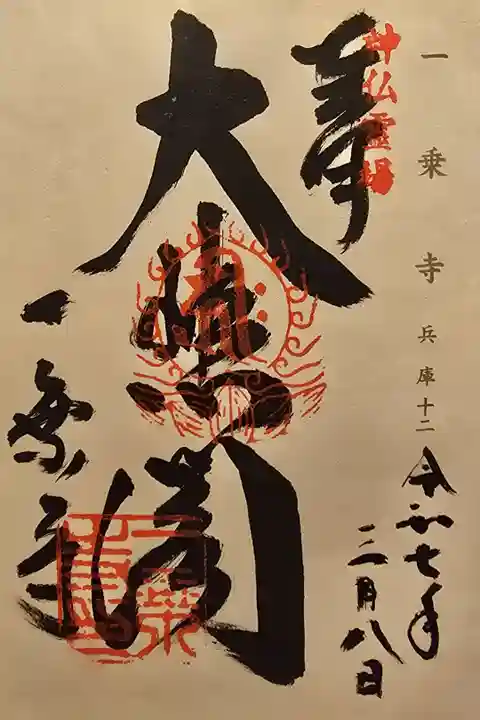 一乗寺 兵庫十二
令和七年
三月八日
神仏霊場
奉
大悲閣
一乗寺